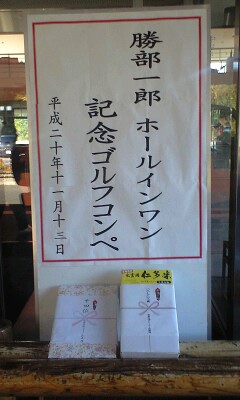 勝部一郎 ホールインワン
記念ゴルフコンペ
平成二十年十一月十三日
仁多米